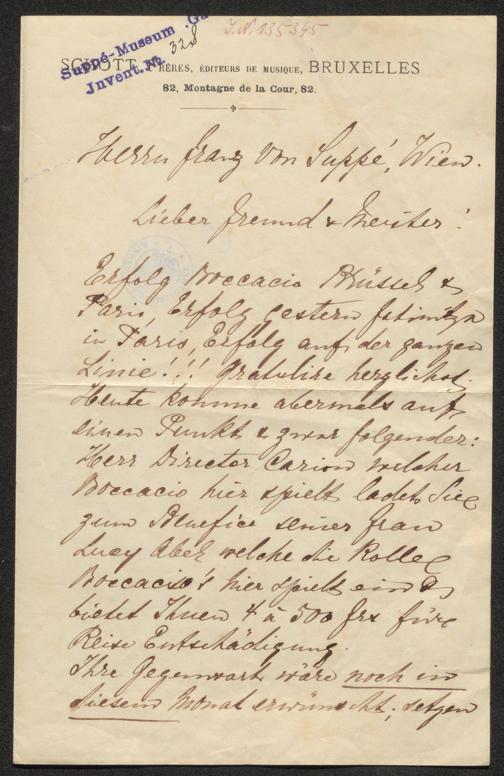 J.N. 135345
Suppé-Museum
Jnvent. Nr. 328
SCHOTT FRÈRES, ÉDITEURS DE MUSIQUE, BRUXELLES
82, Montagne de la Cour, 82.
Herrn Franz von Suppé, Wien.
Lieber Freund & Meister!
Erfolg Boccacio Brüssel &
Paris, Erfolg gestern Fatinitza
in Paris, Erfolg auf der ganzen
Linie!!! Gratulire herzlichst.
Heute komme abermals auf
einen Punkt & zwar folgender:
Herr Director Carion welcher
Boccacio hier spielt ladet Sie
zum Benefice seiner Frau
Lucy Abel welche die Rolle
Boccacio's hier spielt ein &
bietet Ihnen 4 à 500 frs für
Reise Entschädigung.
Ihre Gegenwart wäre noch in
diesem Monat erwünscht; setzen